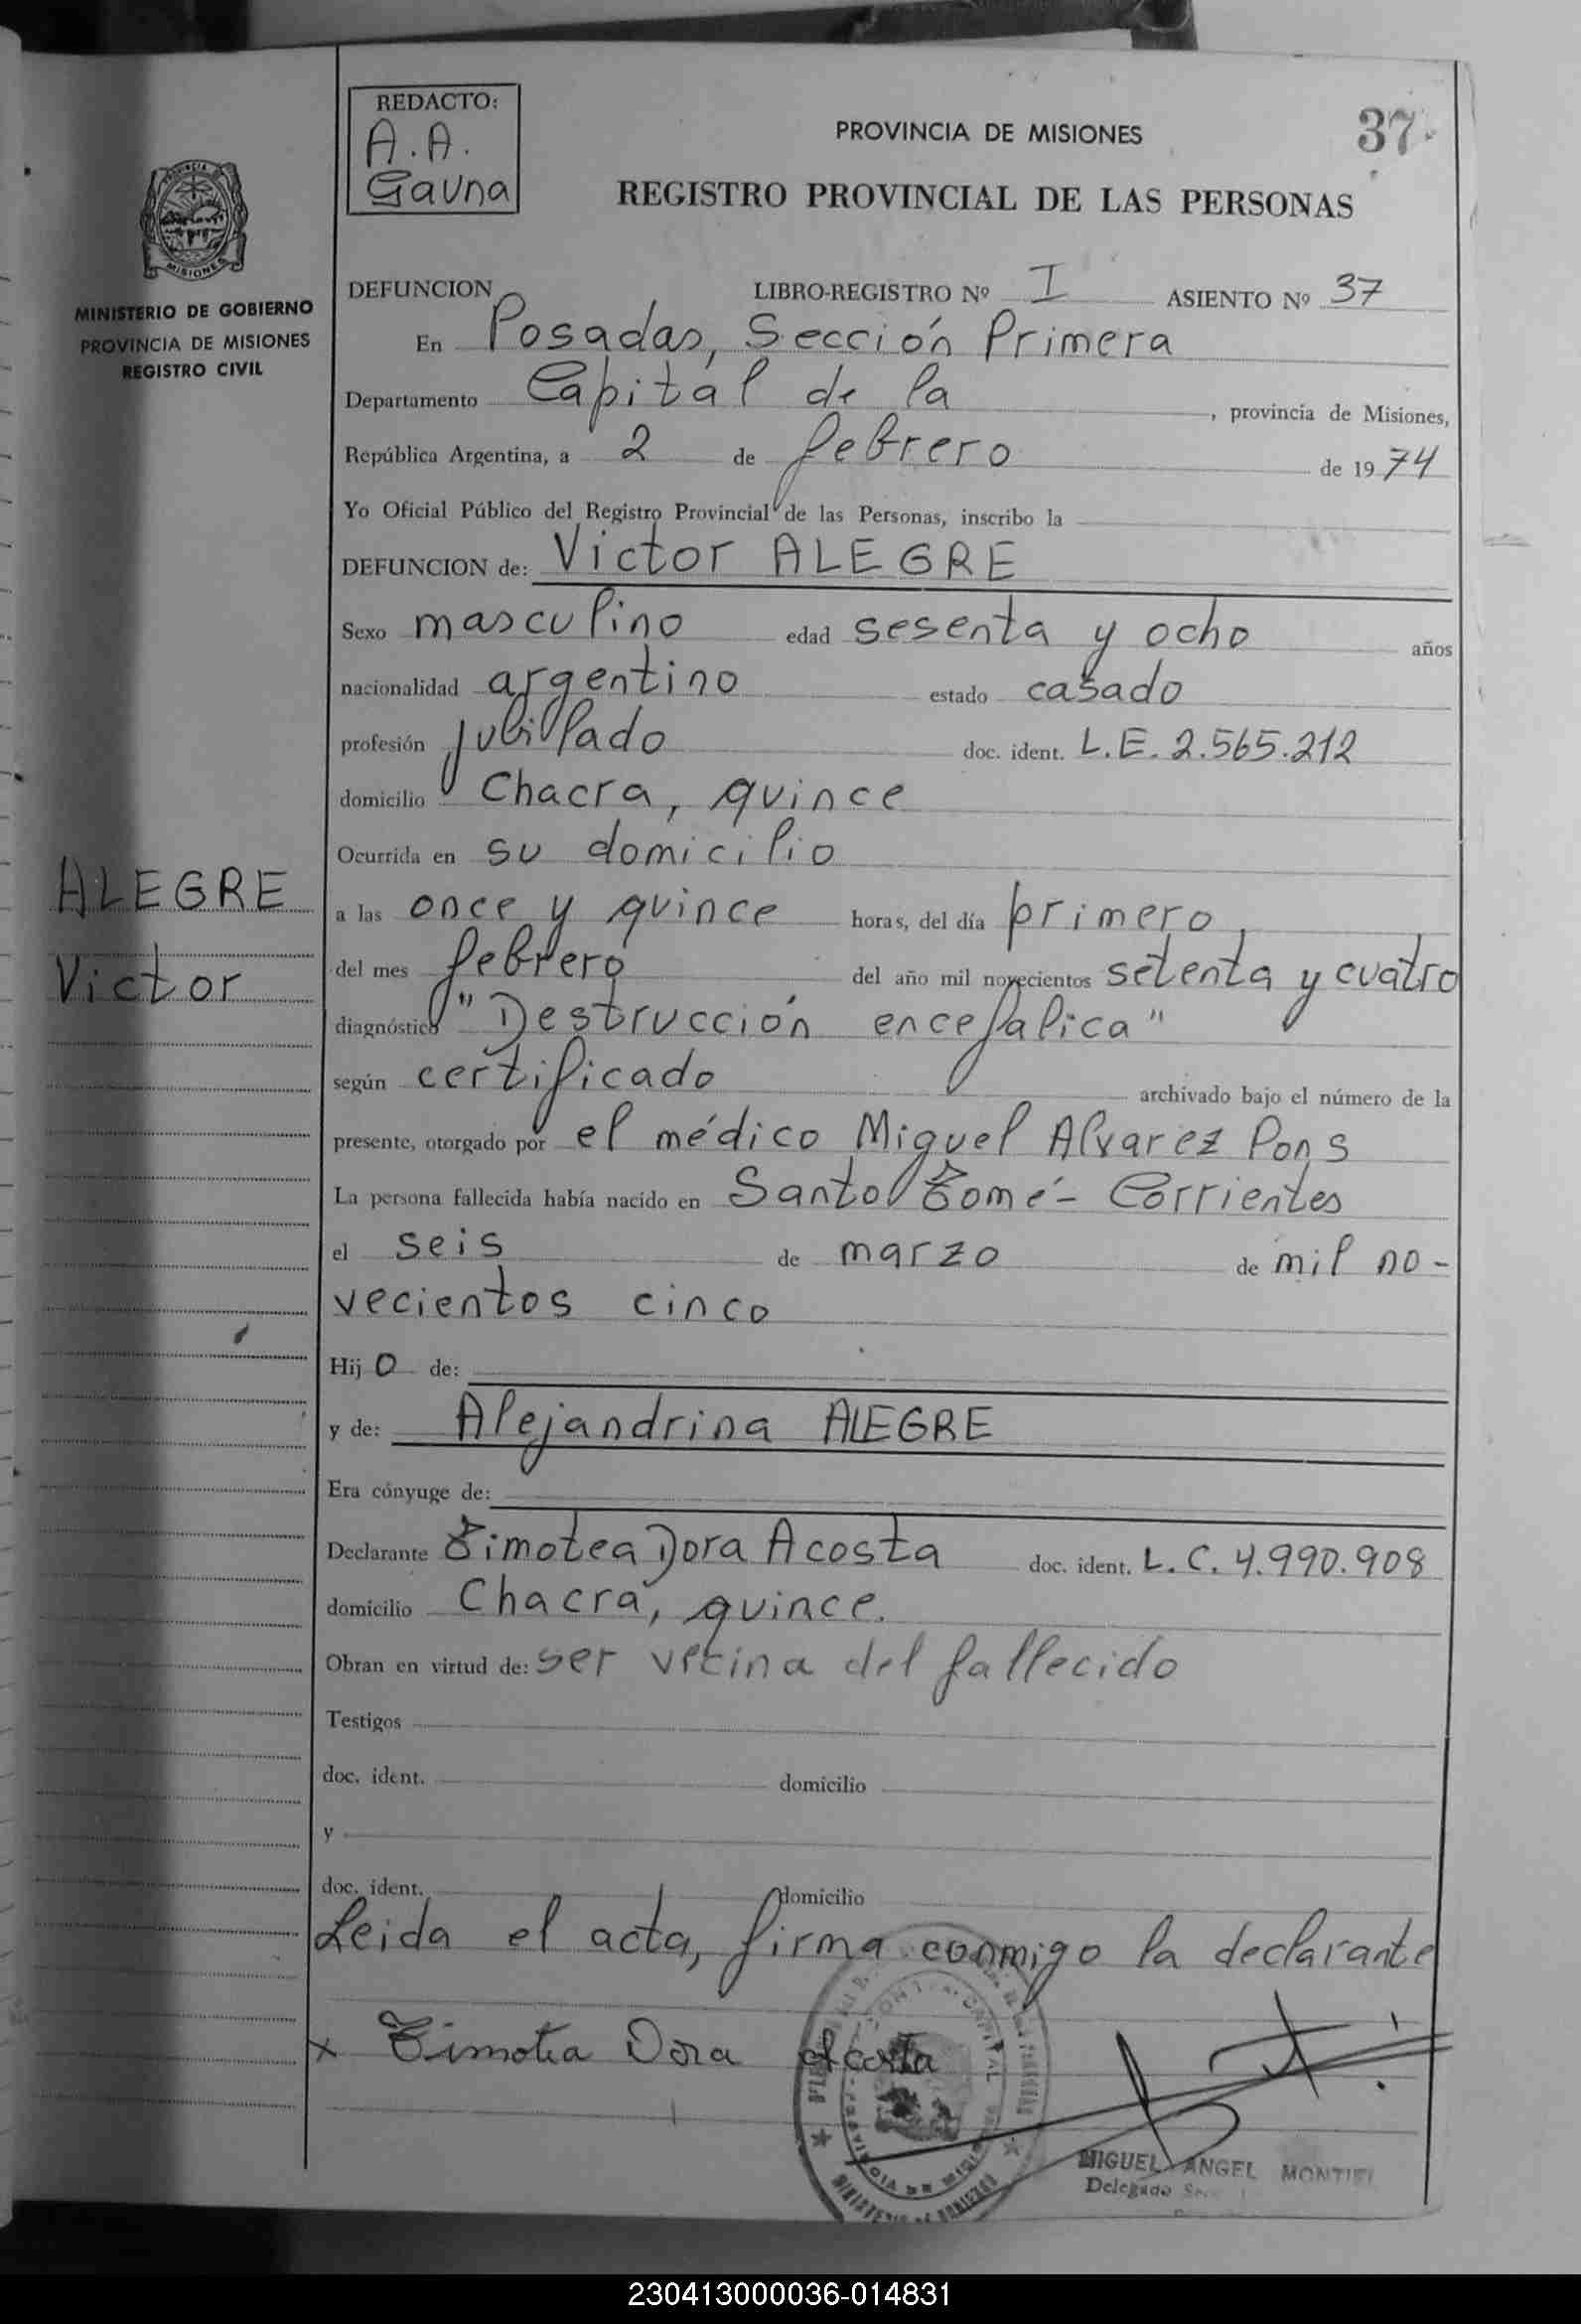 REDACTO:
A. A.
Gauna
37
PROVINCIA DE MISIONES
REGISTRO PROVINCIAL DE LAS PERSONAS
MISIONES
MINISTERIO DE GOBIERNO
PROVINCIA DE MISIONES
REGISTRO CIVIL
DEFUNCION LIBRO-REGISTRO Nº I ASIENTO Nº 37
En Posadas, Sección Primera
Departamento Capital de la , provincia de Misiones,
República Argentina, a 2 de febrero de 1974
Yo Oficial Público del Registro Provincial de las Personas, inscribo la
DEFUNCION de: Victor ALEGRE
Sexo masculino edad sesenta y ocho años
nacionalidad argentino estado casado
profesión jubilado doc. ident. L.E. 2.565.212
domicilio Chacra, quince
Ocurrida en su domicilio
ALEGRE
Victor
a las once y quince horas, del día primero,
del mes febrero del año mil novecientos setenta y cuatro
diagnóstico "Destrucción encefalica"
según certificado archivado bajo el número de la
presente, otorgado por el médico Miguel Alvarez Pons
La persona fallecida había nacido en Santo Tomé - Corrientes
el seis de marzo de mil no-
vecientos cinco
Hijo de:
y de: Alejandrina ALEGRE
Era cónyuge de:
Declarante Timotea Dora Acosta doc. ident. L.C. 4.990.908
domicilio Chacra, quince.
Obran en virtud de: ser vecina del fallecido
Testigos
doc. ident. domicilio
y
doc. ident. domicilio
Leida el acta, firma conmigo la declarante
x Timotea Dora Acosta
MIGUEL ANGEL MONTIEL
Delegado
230413000036-014831